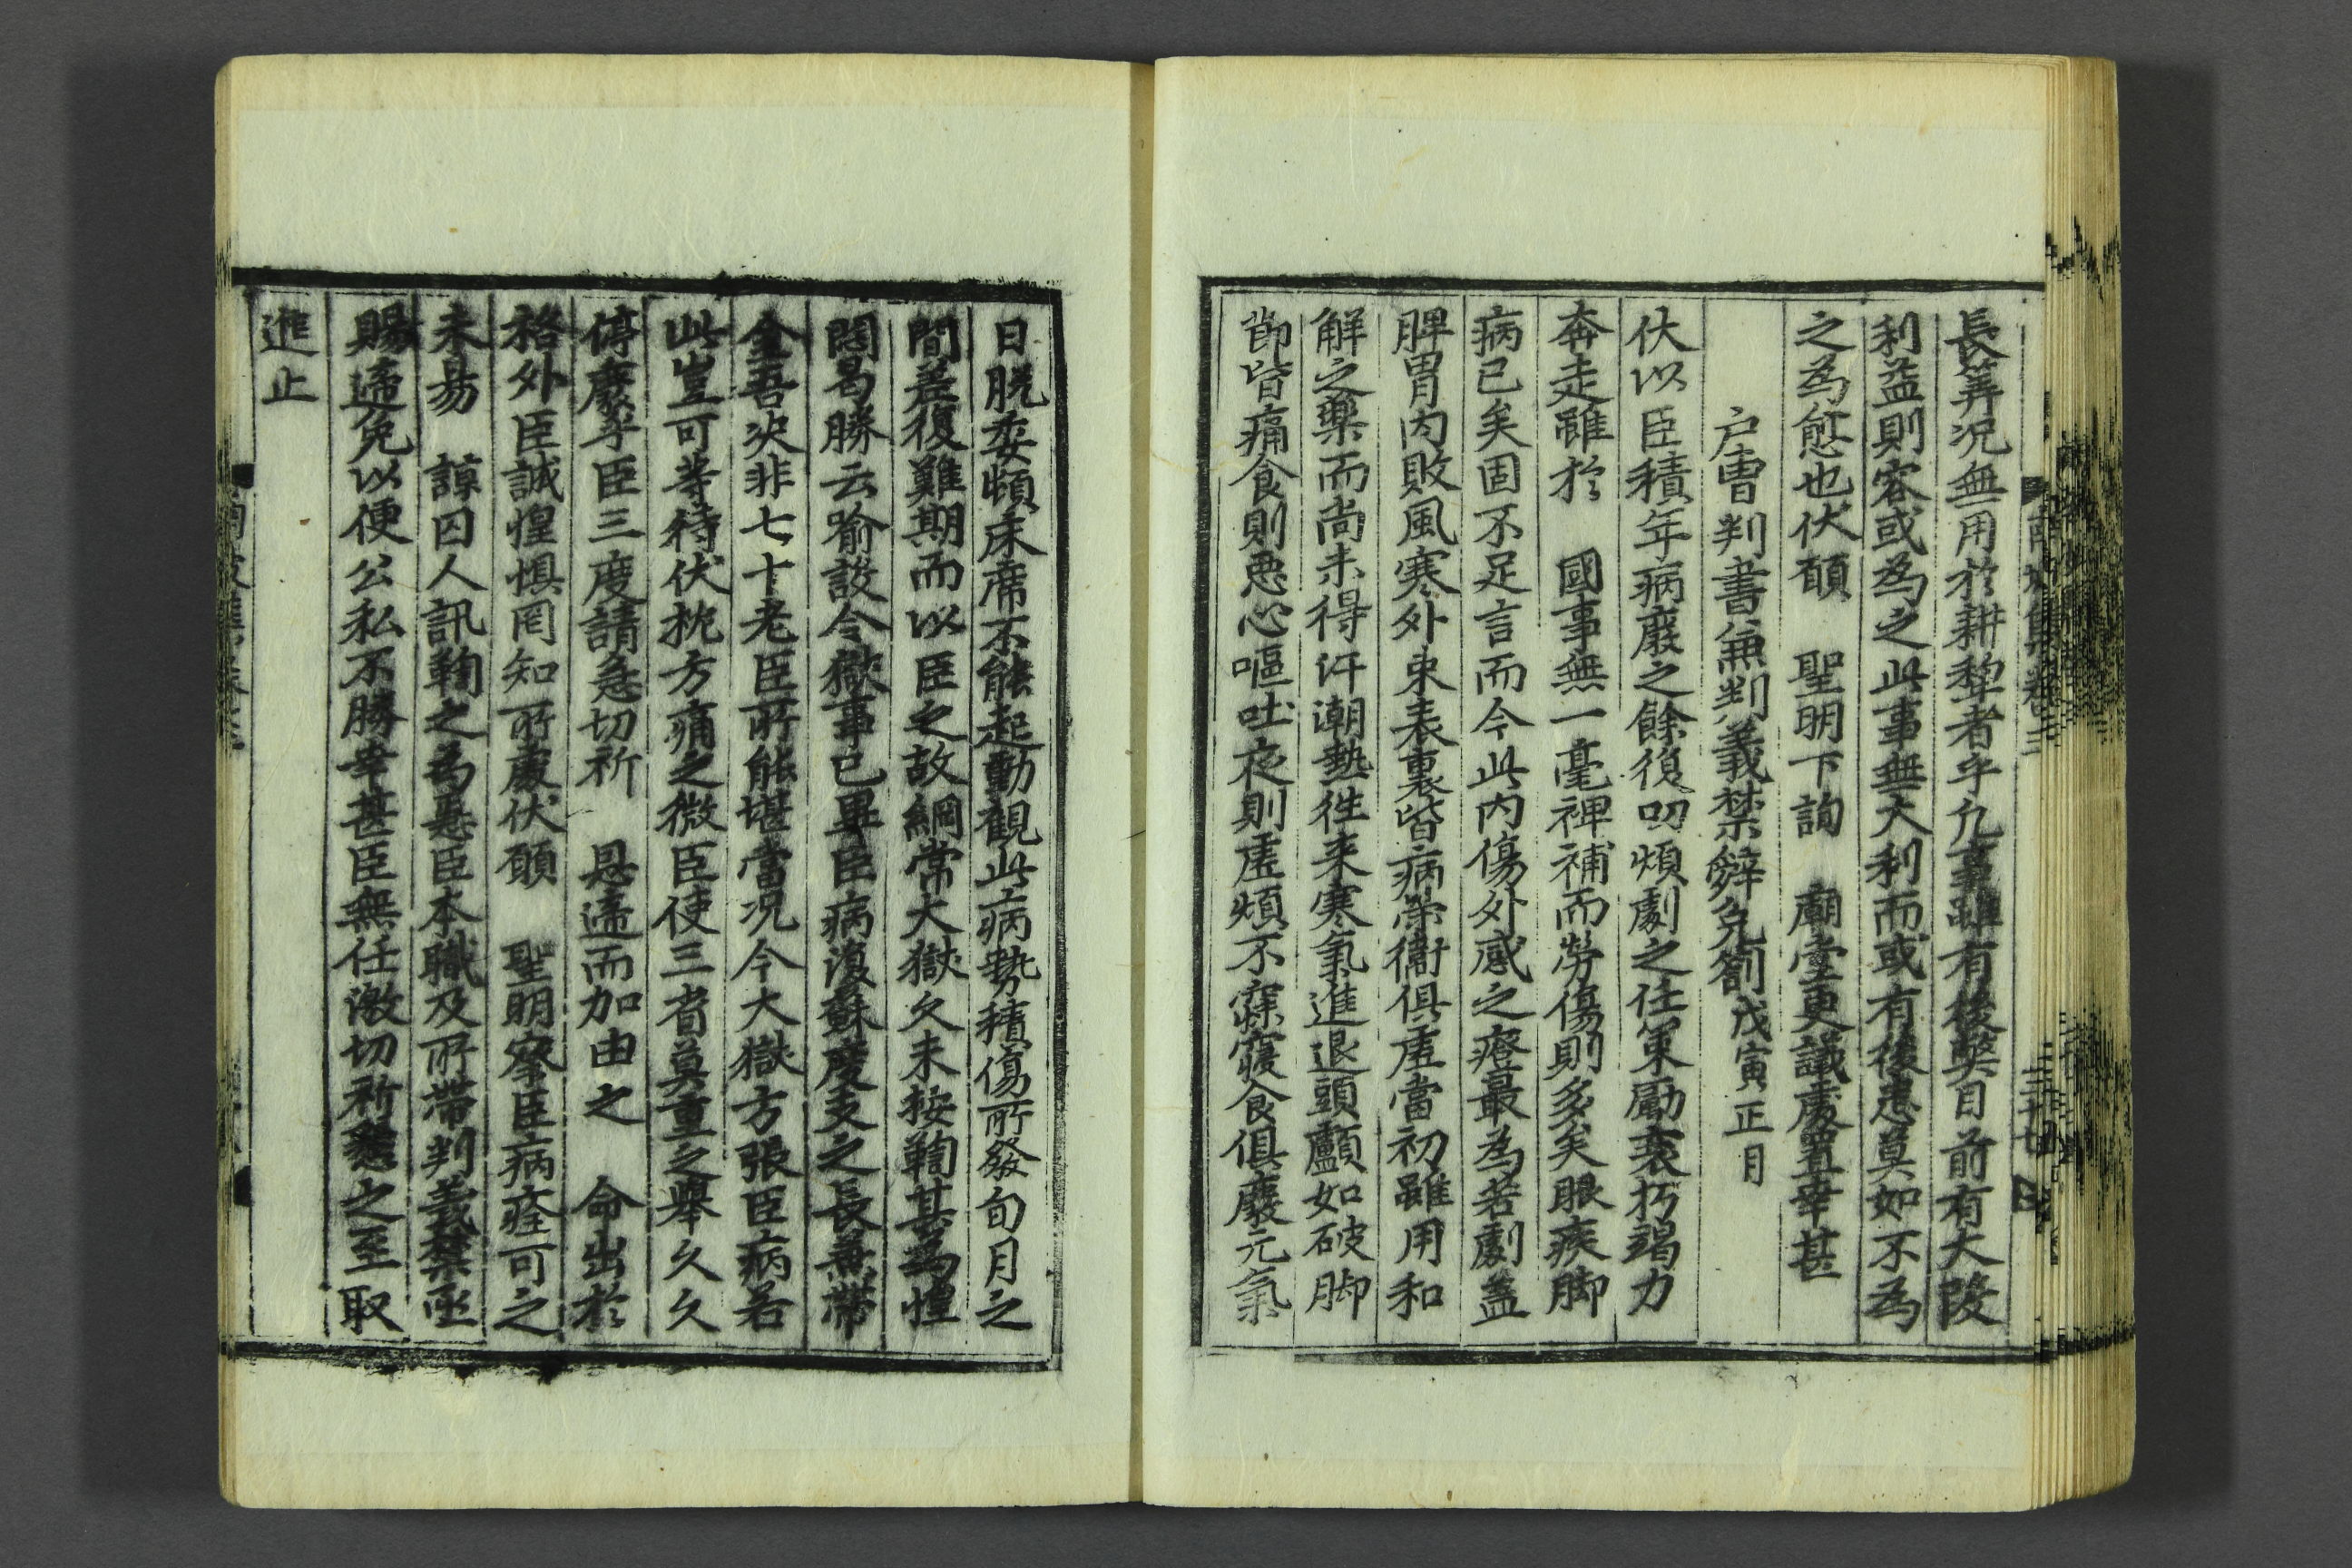 長筭况無用於耕犂者乎凡事雖有後弊目前有大段
利益則容或爲之此事無大利而或有後患莫如不爲
之爲愈也伏願 聖明下詢 廟堂更議處置幸甚
戶曹判書兼判義禁辭免箚戊寅正月
伏以臣積年病廢之餘復叨煩劇之任策勵衰朽竭力
奔走雖於 國事無一毫裨補而勞傷則多矣眼疾脚
病已矣固不足言而今此內傷外感之證最爲苦劇蓋
脾胃內敗風寒外束表裏皆病榮衛俱虛當初雖用和
解之藥而尙未得汗潮熱徃來寒氣進退頭顱如破脚
節皆痛食則惡心嘔吐夜則虛煩不寐寢食俱廢元氣
日脫委頓床席不能起動觀此病勢積傷所發旬月之
間差復難期而以臣之故綱常大獄久未按鞫甚爲惶
悶曷勝云喻設令獄事已畢臣病復蘇度支之長兼帶
金吾决非七十老臣所能堪當况今大獄方張臣病若
此豈可等待伏枕方痛之微臣使三省莫重之擧久久
停廢乎臣三度請急切祈 恩遞而加由之 命出於
格外臣誠惶惧罔知所處伏願 聖明察臣病痊可之
未易 諒囚人訊鞫之爲急臣本職及所帶判義禁亟
賜遞免以便公私不勝幸甚臣無任激切祈懇之至取
進止